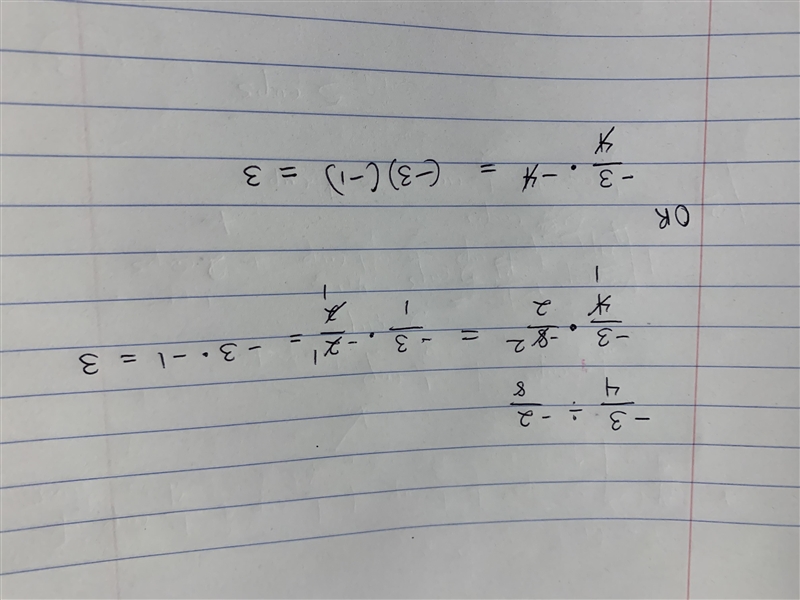 -3/4 ÷ -2/8
-3/4 1 · -8 2/2 = -3/1 · -2 1/2 1 = -3 · -1 = 3
OR
-3/4 · -4 = (-3)(-1) = 3